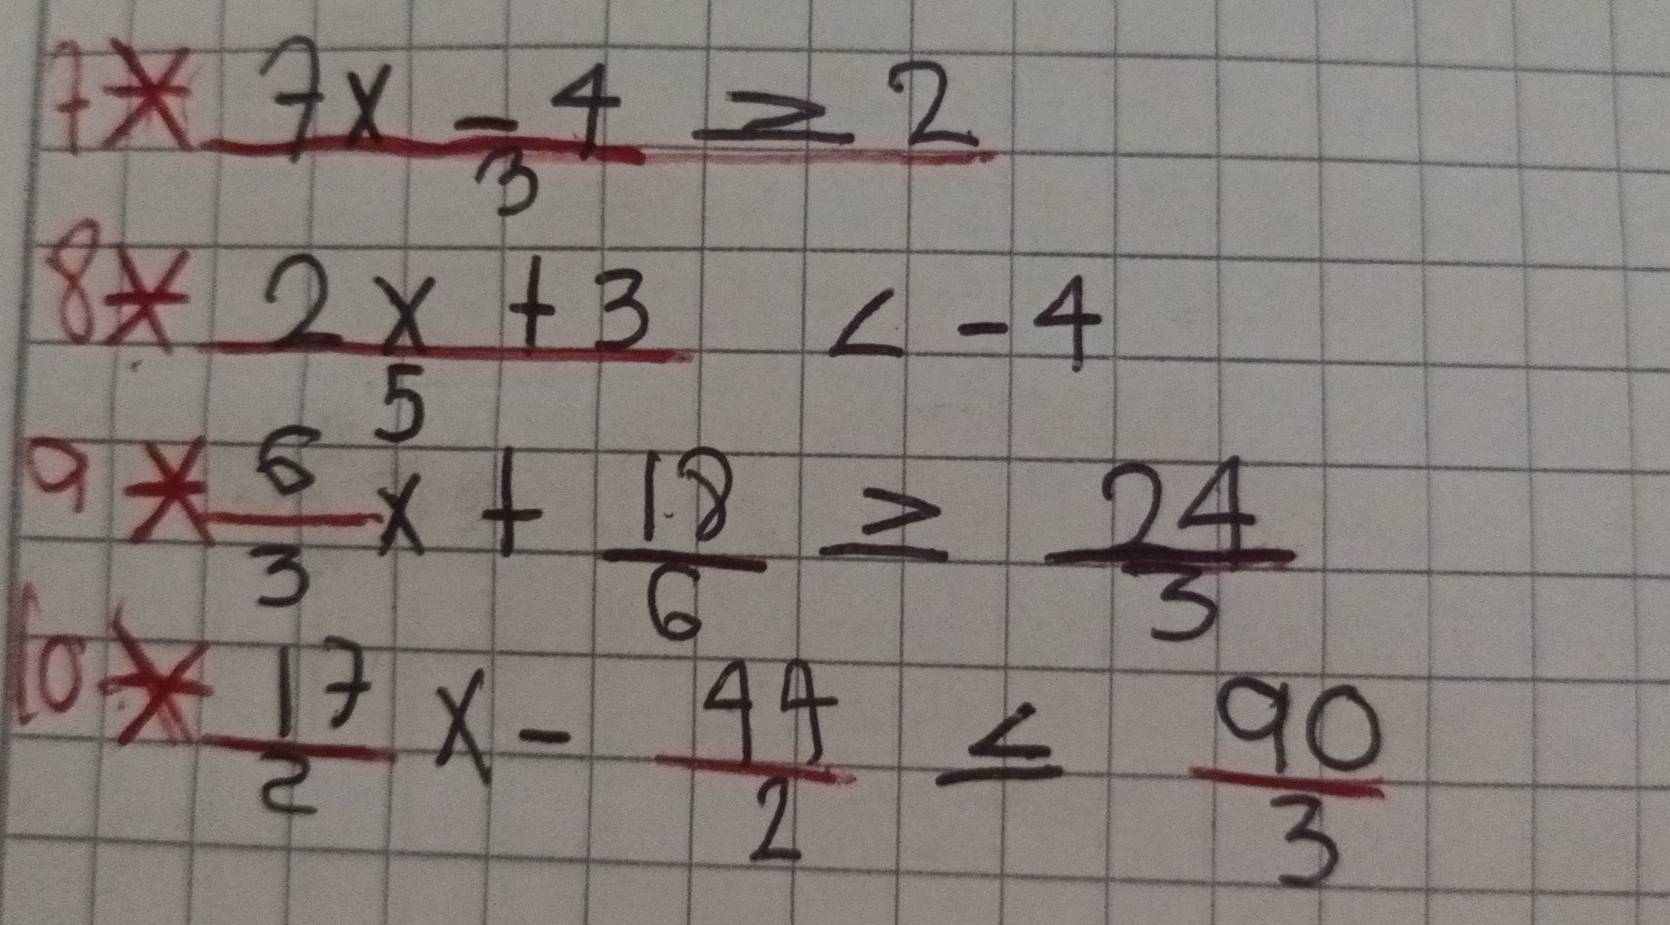 7* 7x - 4 ≥ 2
3
8* 2x + 3 < -4
5
9* 6/3 x + 18/6 ≥ 24/3
10* 17/2 x - 44/2 ≤ 90/3